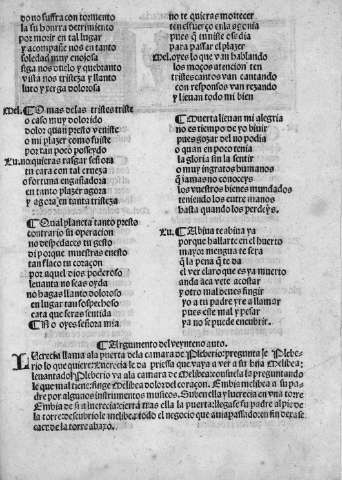 do no suffra con tormento
la su honrra detrimiento
por morir en tal lugar
y acompañe nos en tanto
soledad muy enojosa
siga nos duelo y quebranto
vista nos tristeza y llanto
luto y xerga dolorosa
Mel. O mas de las tristes triste
o caso muy dolorido
dolor quan presto veniste
o mi plazer como fuiste
por tan poco posseydo
Lu. no quieras rasgar señora
tu cara con tal crueza
o fortuna engañadora
en tanto plazer agora
y agora en tanta tristeza
Qual planeta tanto presto
contrario su operacion
no despedaces tu gesto
di porque muestras en esto
tan flaco tu coraçon
por aquel dios poderoso
leuanta no seas oyda
no hagas llanto doloroso
en lugar tan sospechoso
cata que seras sentida
No oyes señora mia
no te quieras mortecer
ten esfuerço en la agonia
pues que touiste osadia
para passar el plazer
Mel. oyes lo que van hablando
los moços atencion ten
tristes cantos van cantando
con responsos van rezando
y lleuan todo mi bien
Muerta lleuan mi alegria
no es tiempo de yo biuir
pues gozar del no podia
o quan en poco tenia
la gloria sin la sentir
o muy ingratos humanos
que jamas no conoceys
los vuestros bienes mundados
teniendo los entre manos
hasta quando los perdeys.
Lu. Abiua te abiua ya
porque hallarte en el huerto
mayor mengua te sera
que la pena que te da
el ver claro que es ya muerto
anda aca vete acostar
y otro mal deues fingir
yo a tu padre yre a llamar
pues este mal y pesar
ya no se puede encubrir.
Argumento del veynteno auto.
Lucrecia llama ala puerta dela camara de Pleberio: pregunta le Plebe-
rio lo que quiere: Lucrecia le da priessa que vaya a ver a su hija Melibea:
leuantado Pleberio va ala camara de Melibea: consuela la preguntando
le que mal tiene: finge Melibea dolor del coraçon. Embia melibea a su pa-
dre por algunos instrumentos musicos. Suben ella y lucrecia en vna torre
Embia de si a lucrecia: cierra tras ella la puerta: llegase su padre al pie de
la torre descubrio le melibea todo el negocio que auia passado: en fin dexa se
caer de la torre abaxo.